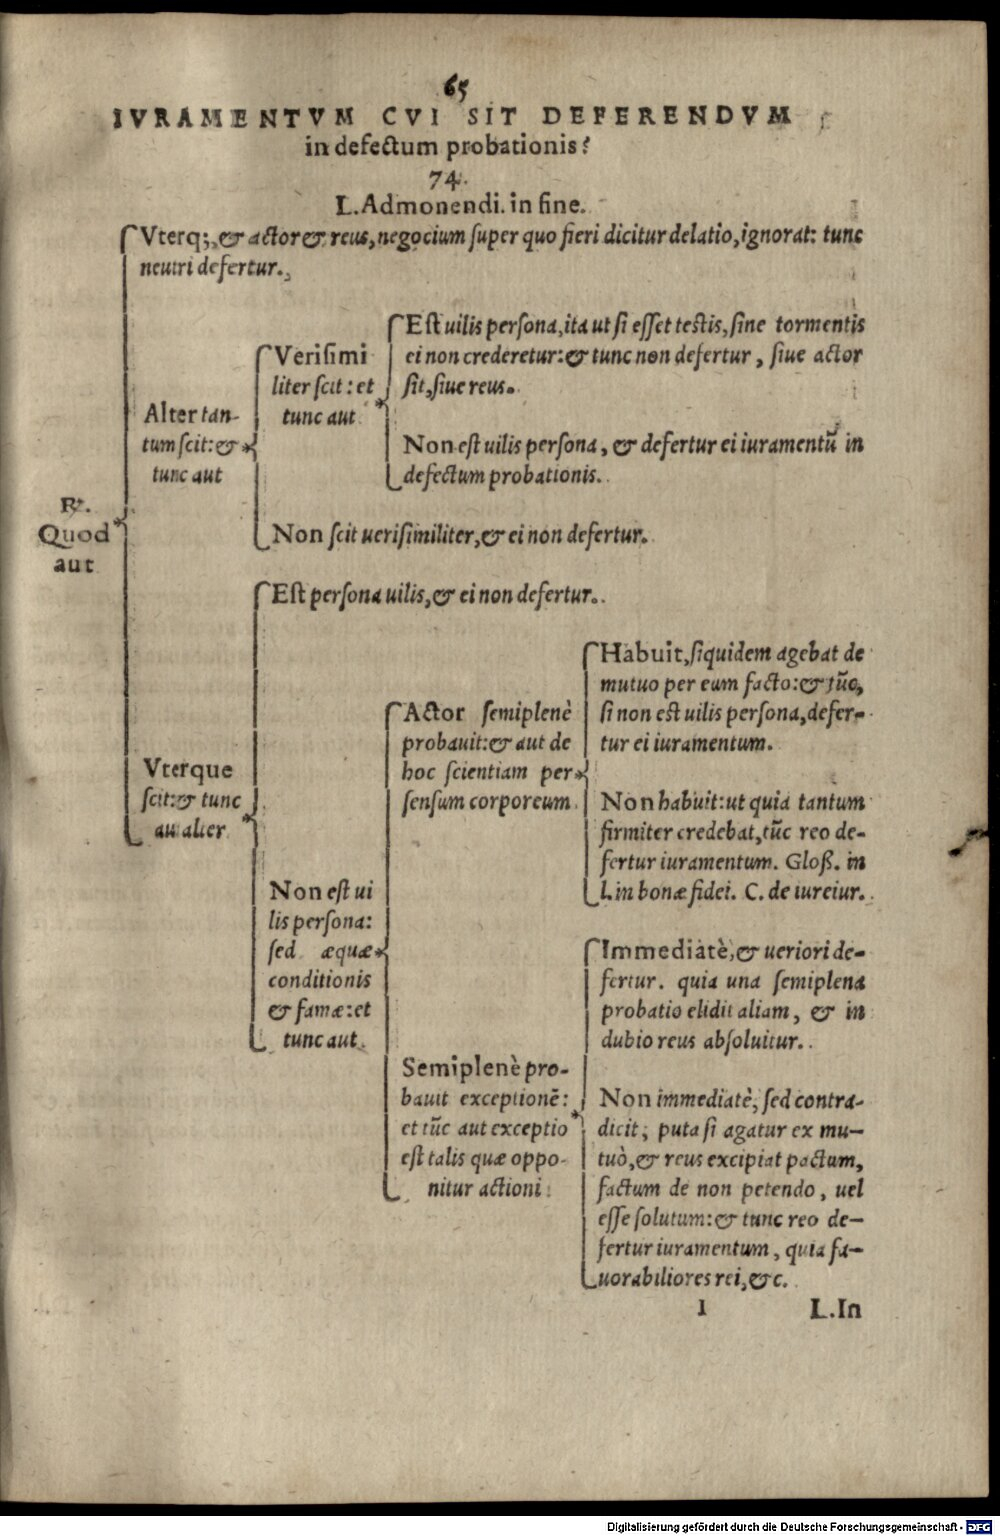 65
IVRAMENTVM CVI SIT DEFERENDVM
in defectum probationis?
74.
L. Admonendi. in fine.
℞.
Quod
aut
Vterq;, & actor & reus, negocium super quo fieri dicitur delatio, ignorat: tunc
neutri defertur.
Alter tan-
tum scit: &
tunc aut
Verisimi
liter scit: et
tunc aut
Est uilis persona, ita ut si esset testis, sine tormentis
ei non crederetur: & tunc non defertur, siue actor
sit, siue reus.
Non est uilis persona, & defertur ei iuramentū in
defectum probationis.
Non scit uerisimiliter, & ei non defertur.
Vterque
scit: & tunc
aut alter
Est persona uilis, & ei non defertur.
Non est ui
lis persona:
sed æquæ
conditionis
& famæ: et
tunc aut
Actor semiplenè
probauit: & aut de
hoc scientiam per
sensum corporeum
Habuit, siquidem agebat de
mutuo per eum facto: & tūc,
si non est uilis persona, defer-
tur ei iuramentum.
Non habuit: ut quia tantum
firmiter credebat, tūc reo de-
fertur iuramentum. Gloß. in
l. in bonæ fidei. C. de iureiur.
Semiplenè pro-
bauit exceptionē:
et tūc aut exceptio
est talis quæ oppo-
nitur actioni
Immediatè, & ueriori de-
fertur. quia una semiplena
probatio elidit aliam, & in
dubio reus absoluitur.
Non immediatè, sed contra-
dicit, puta si agatur ex mu-
tuò, & reus excipiat pactum,
factum de non petendo, uel
esse solutum: & tunc reo de-
fertur iuramentum, quia fa-
uorabiliores rei, &c.
I L. In
Digitalisierung gefördert durch die Deutsche Forschungsgemeinschaft - DFG